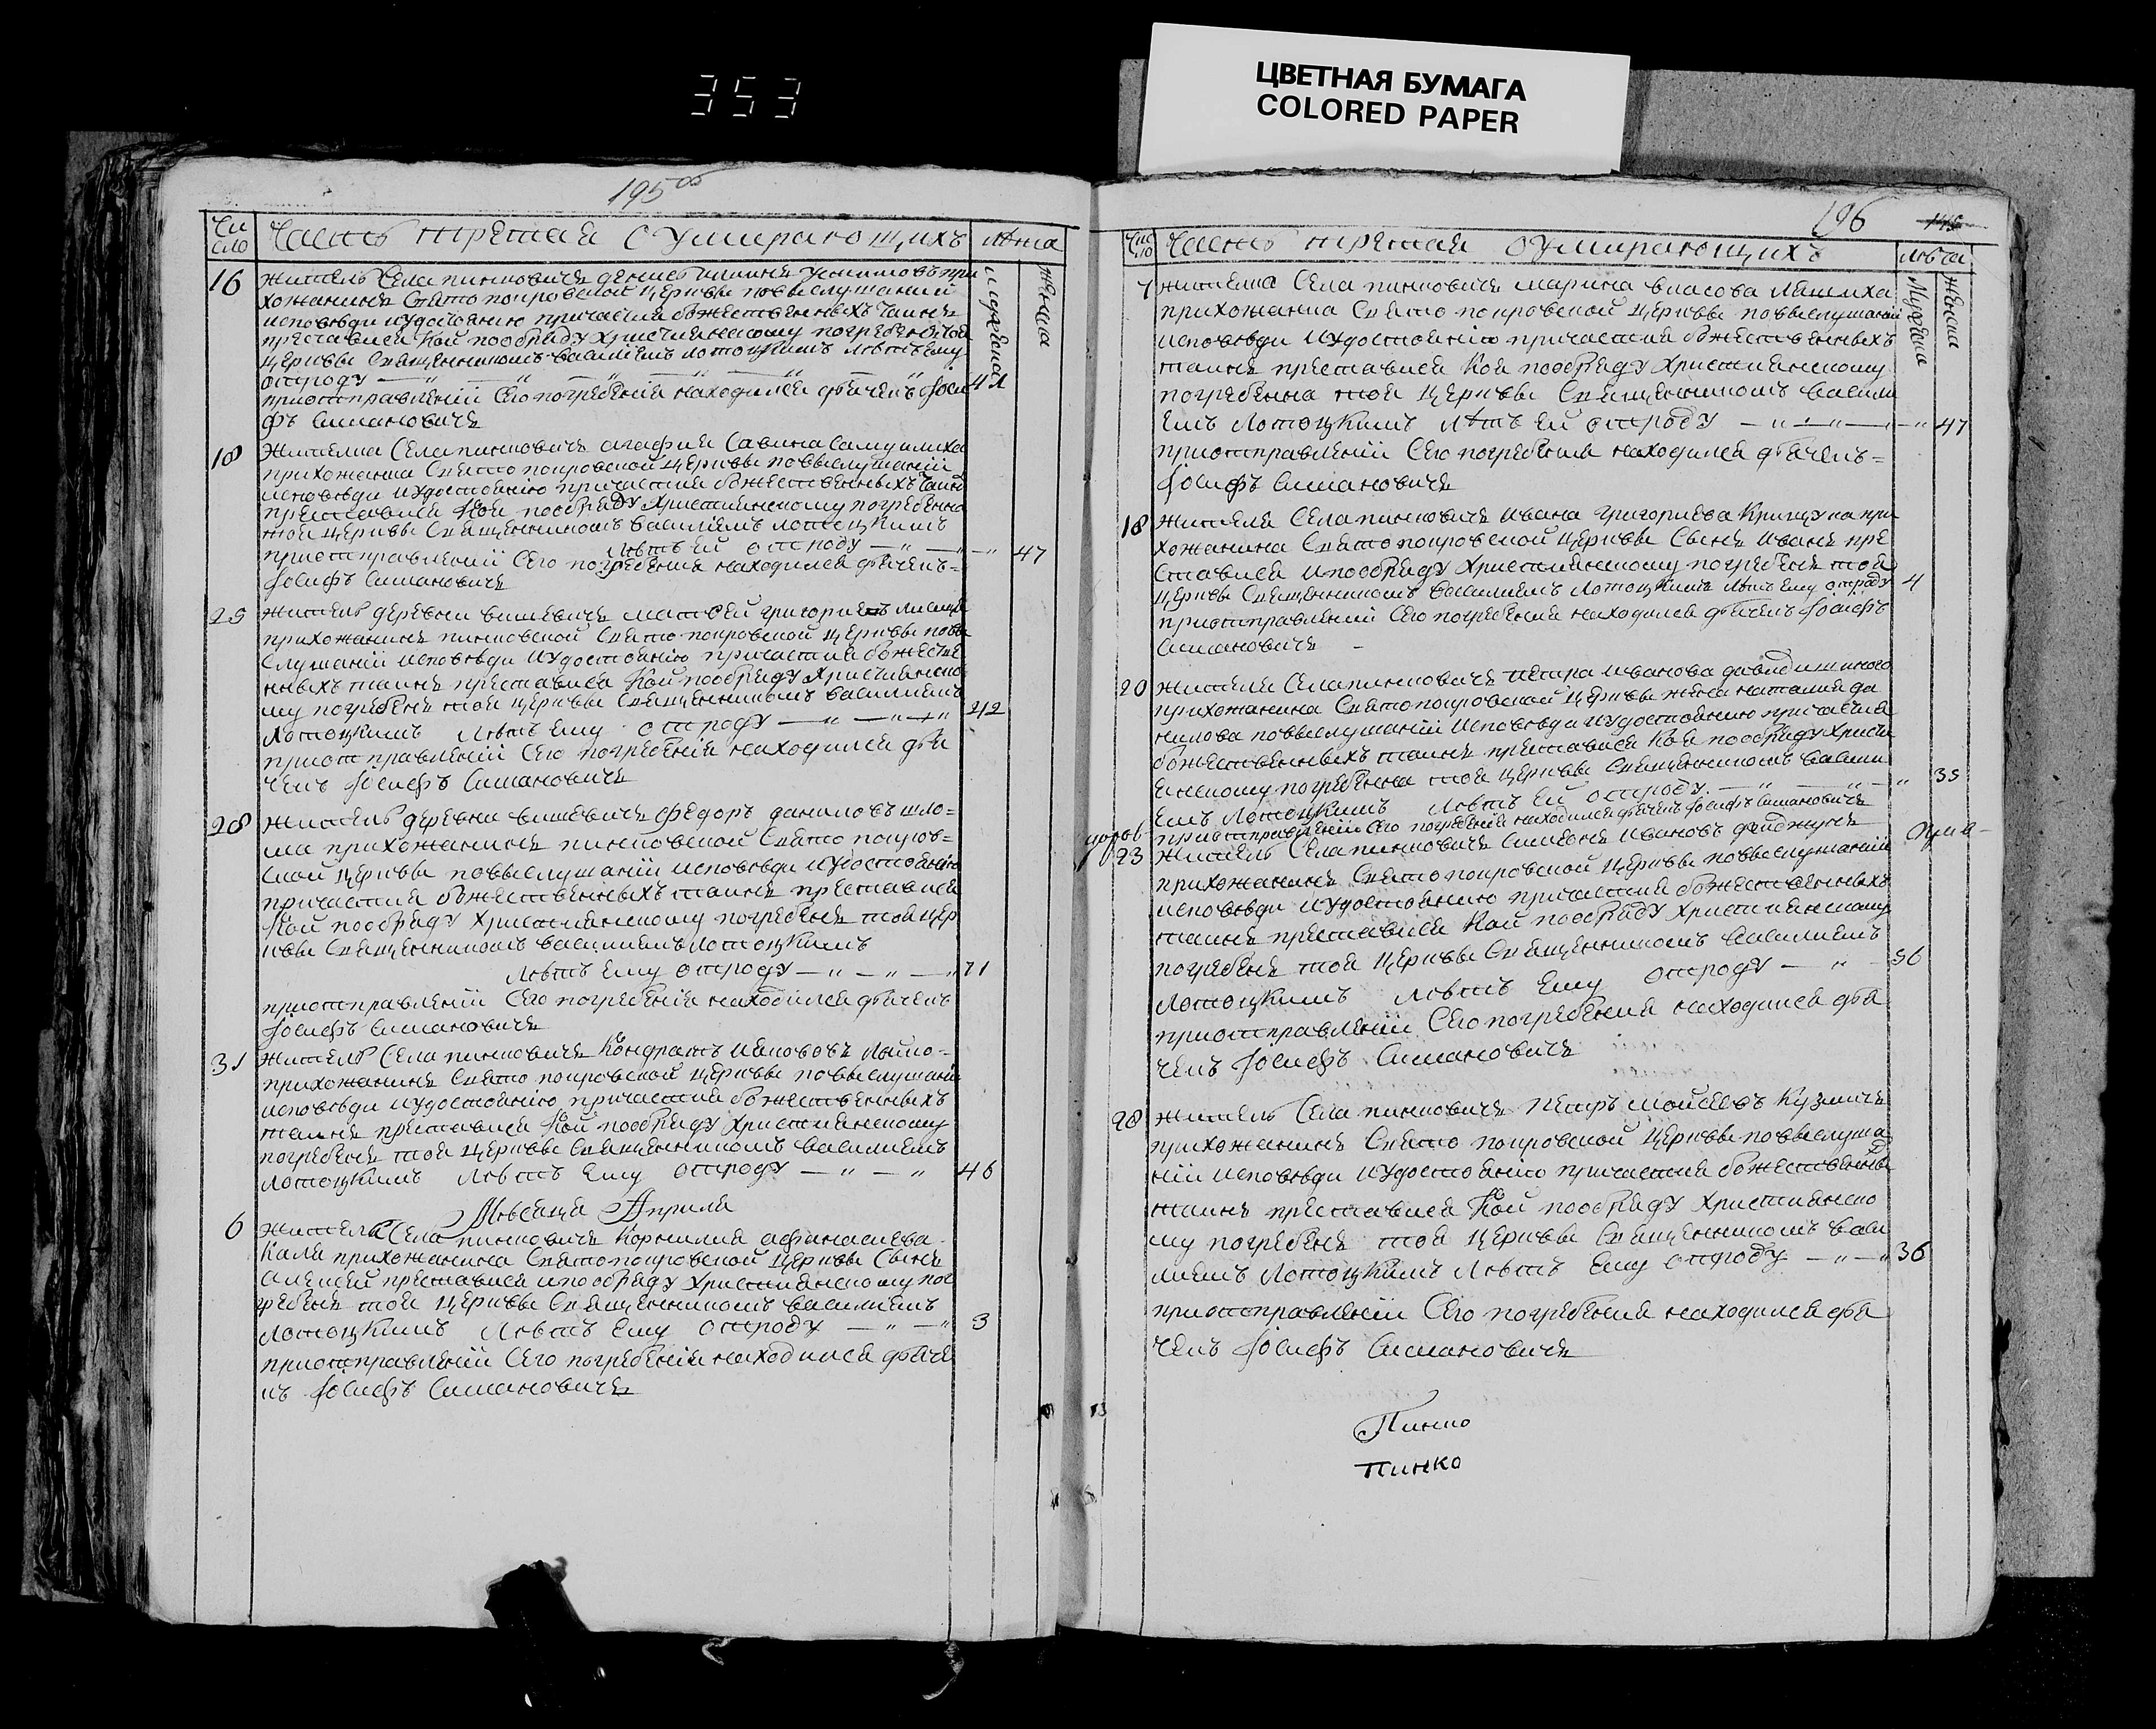 353
ЦВЕТНАЯ БУМАГА
COLORED PAPER
195 об
Чи
сло
Часть третая О умирающихъ
лѣта
мужеска
женска
16 житель Села пинковичь денисъ
хожанинъ Свято покровской церквы повыслушаній
исповѣди иудостоянію причастия божественныхъ таинъ
преставися Кой пообряду Християнскому погребенъ той
церквы Священникомъ василіемъ лотоцкимъ лѣтъ ему
отроду — „ — „ — „ — „ — „ 41
приотправленій Сего погребения находился дячекъ Іоси
фъ Симановичъ
18 Жителка Села пинковичь агафия Савина
прихожанка Свято покровской церквы повыслушаній
исповѣди иудостоянію причастия божественныхъ таинъ
преставися Коя пообряду Християнскому погребенна
той церквы Священникомъ василиемъ лотоцкимъ
лѣтъ ей отроду — „ — „ — „ 47
приотправленій Сего погребения находился дячекъ =
Іосифъ Симановичъ
25 житель деревни вишевичь матѳей григориевъ лисица
прихожанинъ пинковской Свято покровской церквы повы
слушаній исповѣди иудостоянію причастия божестве
нныхъ таинъ преставися Кой пообряду Християнско
му погребенъ той церквы Священникомъ василиемъ
лотоцкимъ лѣтъ ему отроду — „ — „ — „ 42
приотправленій Сего погребенія находился дя
чекъ Іосифъ Симановичъ
28 житель деревни вишевичь федоръ даниловъ шло=
ма прихожанинъ пинковской Свято покров=
ской церквы повыслушаній исповѣди иудостоянію
причастия божественныхъ таинъ преставися
Кой пообряду Християнскому погребенъ той цер
квы Священникомъ василиемъ лотоцкимъ
лѣтъ ему отроду — „ — „ — „ 71
приотправленій Сего погребенія находился дячекъ
Іосифъ Симановичъ
31 житель Села пинковичь Кондратъ лойко =
прихожанинъ Свято покровской церквы повыслушаній
исповѣди иудостоянію причастия божественныхъ
таинъ преставися Кой пообряду Християнскому
погребенъ той церквы Священникомъ василиемъ
лотоцкимъ лѣтъ ему отроду — „ — „ 46
Мѣсяца Априля
6 жителя Села пинковичь Корнилия афанасиева
прихожанина Свято покровской церквы Сынъ
алексей преставися ипообряду Християнскому пог
ребенъ той церквы Священникомъ василиемъ
лотоцкимъ лѣтъ ему отроду — „ — „ 3
приотправленій Сего погребенія находился дяче
къ Іосифъ Симановичъ
196
Чис
ло
Часть третая О умирающихъ
лѣта
Мужеска
женска
7 жителка Села пинковичь марина власова
прихожанка Свято покровской церквы повыслушаній
исповѣди иудостоянію причастия божественныхъ
таинъ преставися Коя пообряду Християнскому
погребенна той церквы Священникомъ васили
емъ лотоцкимъ лѣтъ ей отроду — „ — „ — „ 47
приотправленій Сего погребения находился дячекъ =
Іосифъ Симановичъ
18 жителя Села пинковичь ивана григориева при
хожанина Свято покровской церквы Сынъ иванъ пре
ставися ипообряду Християнскому погребенъ той
церквы Священникомъ василиемъ лотоцкимъ лѣтъ ему отроду 4
приотправленій Сего погребения находился дячекъ Іосифъ
Симановичъ
20 жителя Села пинковичь петра иванова
прихожанина Свято покровской церквы жена наталия да
нилова повыслушаній исповѣди иудостоянію причастия
божественныхъ таинъ преставися Коя пообряду Христи
янскому погребенна той церквы Священникомъ васили
емъ лотоцкимъ лѣтъ ей отроду — „ — „ — „ 35
приотправленій Сего погребенія находился дячекъ Іосифъ Симановичъ
23 житель Села пинковичь Симеонъ ивановъ
прихожанинъ Свято покровской церквы повыслушаній
исповѣди иудостоянію причастия божественныхъ
таинъ преставися Кой пообряду Християнскому
погребенъ той церквы Священникомъ василиемъ
лотоцкимъ лѣтъ ему отроду — „ 56
приотправленій Сего погребения находился дя
чекъ Іосифъ Симановичъ
28 житель Села пинковичь петръ мойсеевъ Кузмичъ
прихожанинъ Свято покровской церквы повыслуша
ній исповѣди иудостоянію причастия божественны
таинъ преставися Кой пообряду Християнско
му погребенъ той церквы Священникомъ васи
лиемъ лотоцкимъ лѣтъ ему отроду — „ — „ 36
приотправленій Сего погребения находился дя
чекъ Іосифъ Симановичъ
Пинко
Пинко